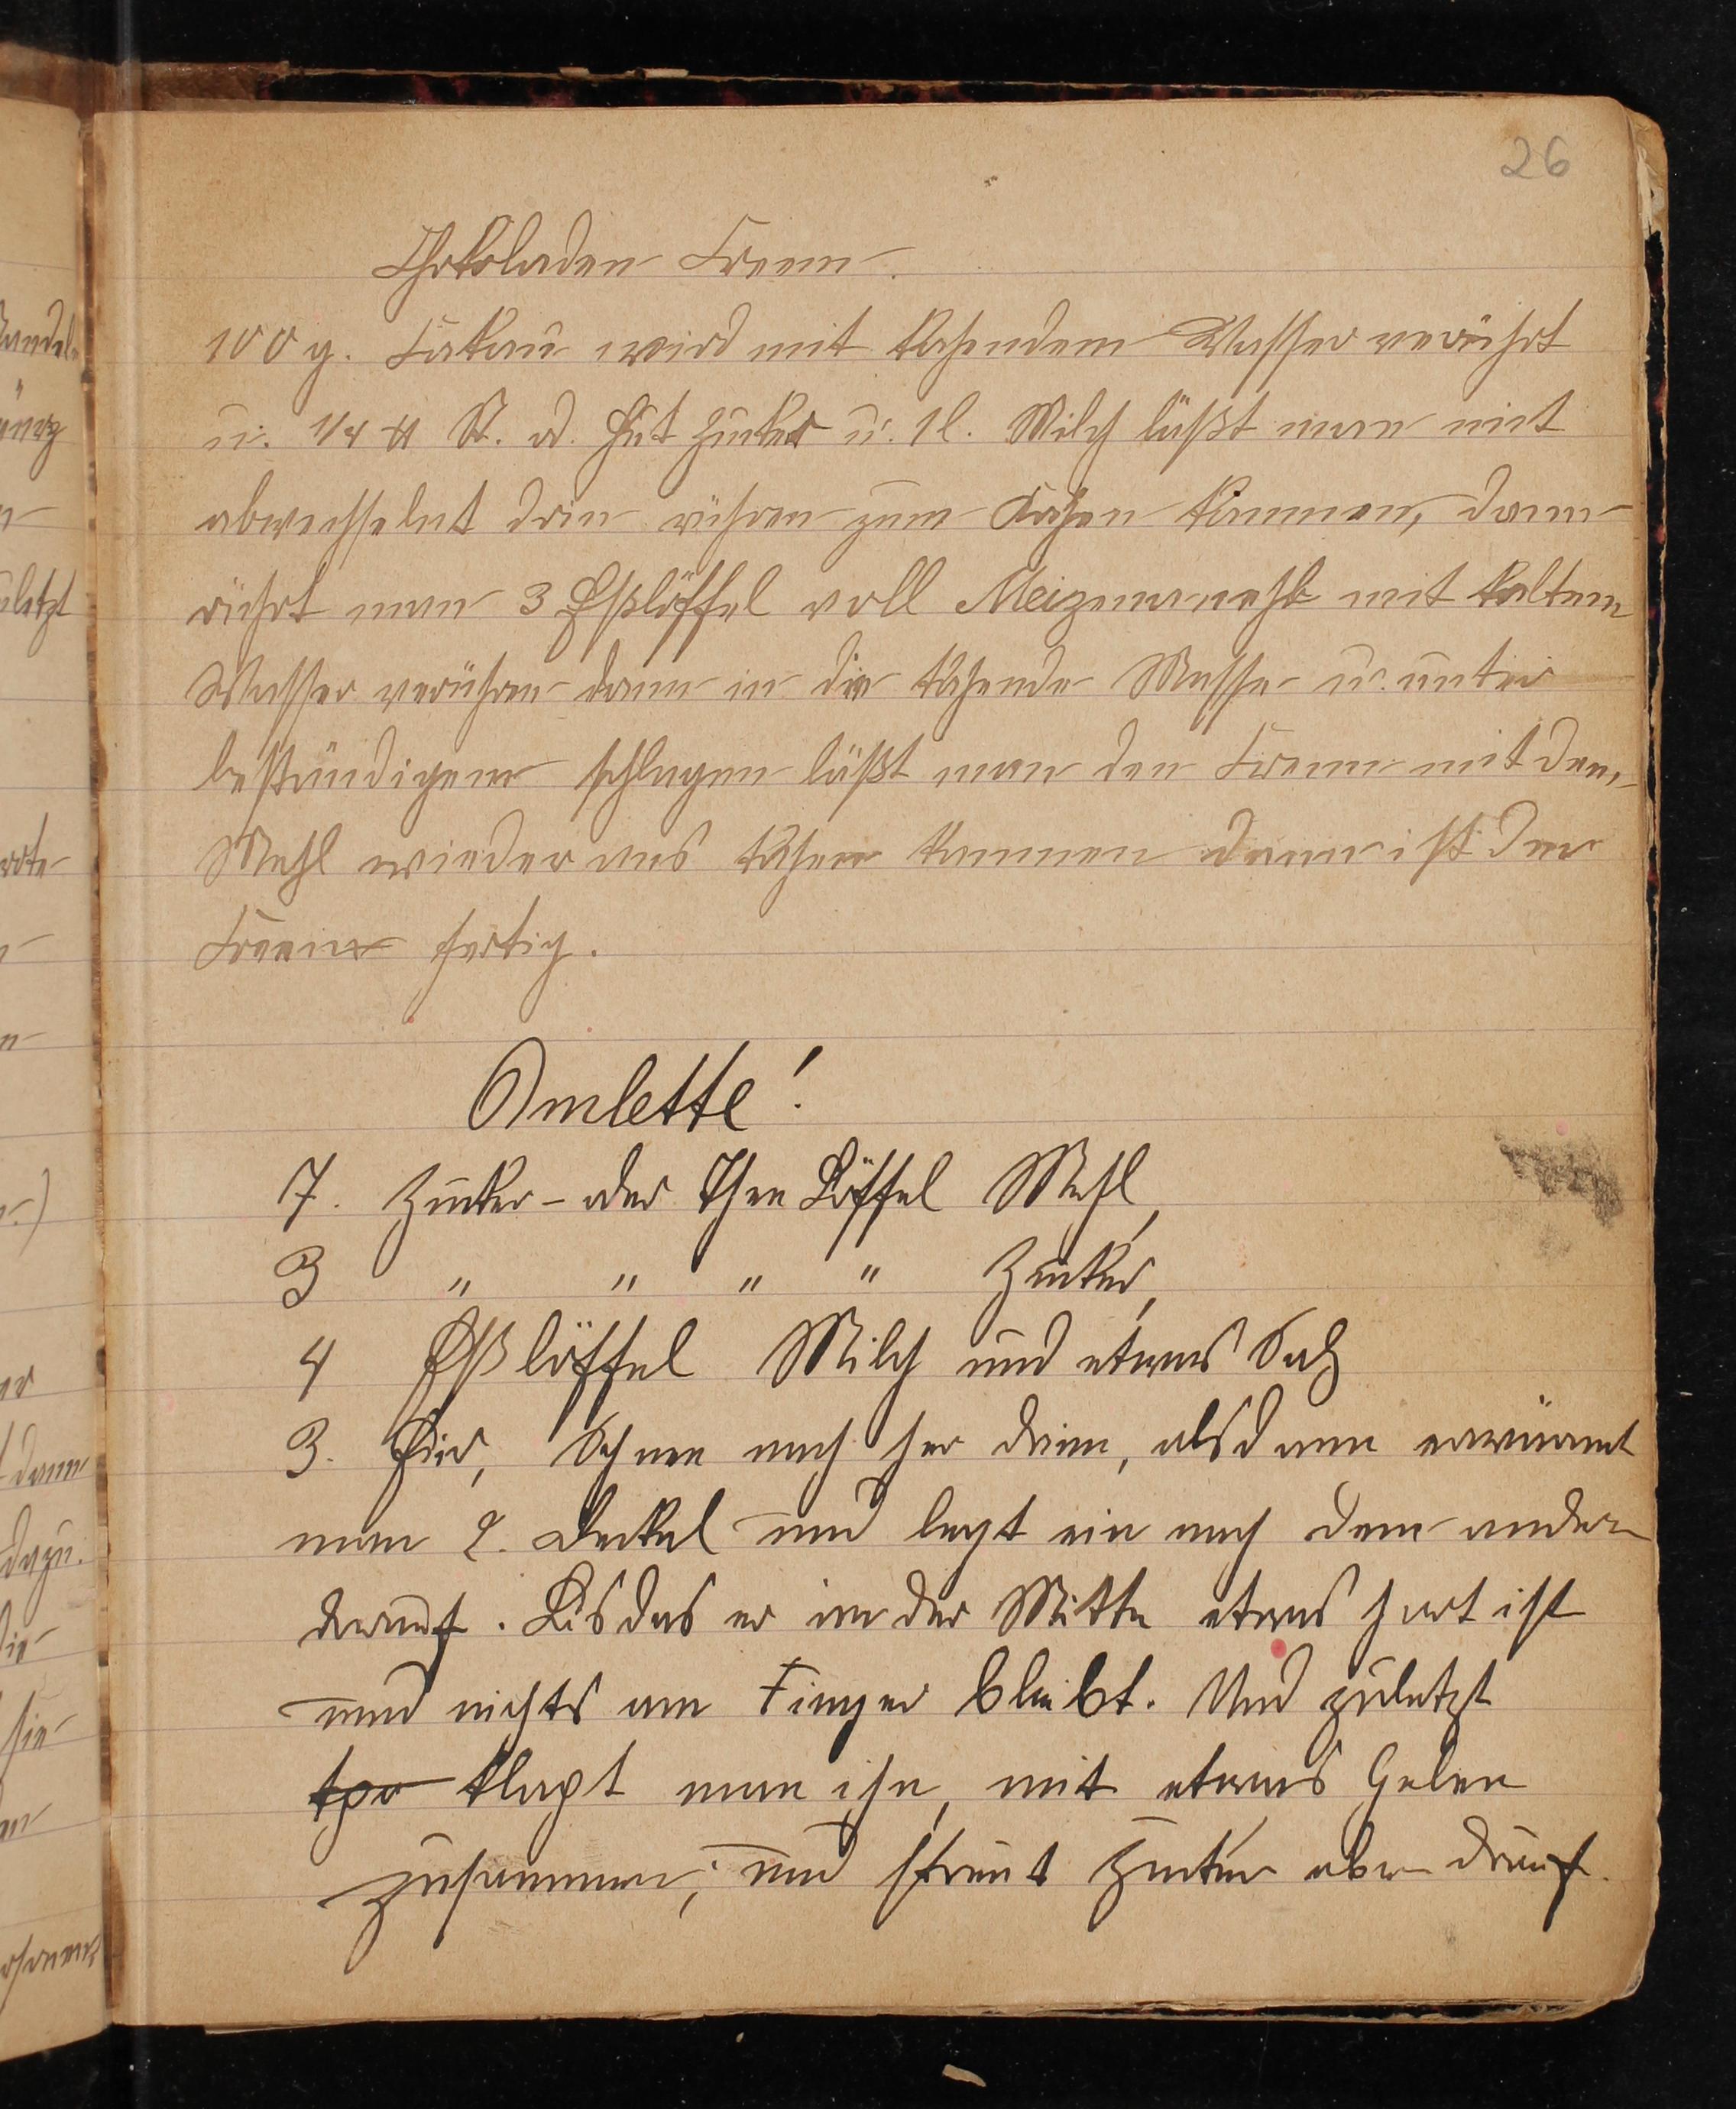 26
Chokoladen Creem.
100 g. Cakau wird mit kochendem Wasser verrührt
u. 1/4 ℔ St. od. Hut Zucker u. 1 l. Milch läßt man mit
abwechselnt drin rühren zum Kochen kommen, dann
rührt man 3 Eßlöffel voll Meizenamehl mit kaltem
Wasser verrühren dann in die kochende Masse u. unter
beständigem schlagen läßt man den Creem mit dem
Mehl wieder ans kochen kommen dann ist der
Creem fertig.
Omlette!
7. Zucker- oder Thee Löffel Mehl,
3 " " " " Zucker,
4 Eßlöffel Milch und etwas Salz
3. Eier, Schnee nach her drinn, alsdann erwärmt
man 2. Deckel und legt ein nach dem andern
darauf. Bis das er in der Mitte etwas hart ist
und nichts am Finger bleibt. Und zuletzt
klapt man ihn, mit etwas Gelee
zusammen; und streut Zucker oben drauf.